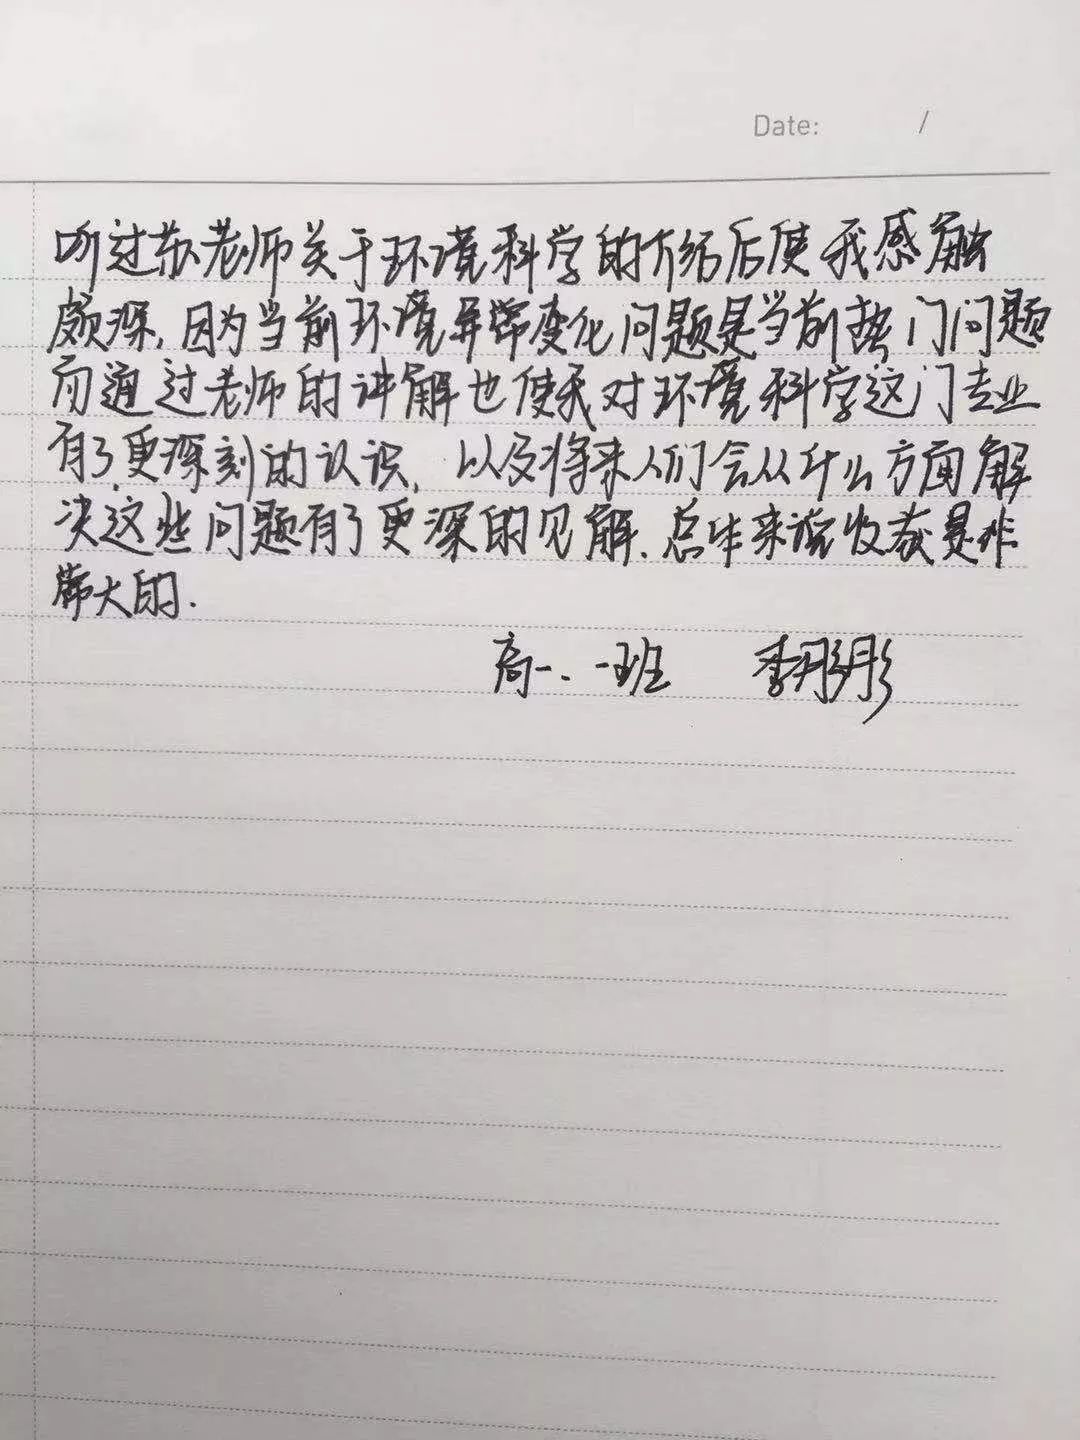 Date: /
听过苏老师关于环境科学的介绍后使我感触
颇深,因为当前环境异常变化问题是当前热门问题
而通过老师的讲解也使我对环境科学这门专业
有了更深刻的认识,以及将来人们会从什么方面解
决这些问题有了更深的见解.总体来说收获是非
常大的.
高一.一班 李彤彤